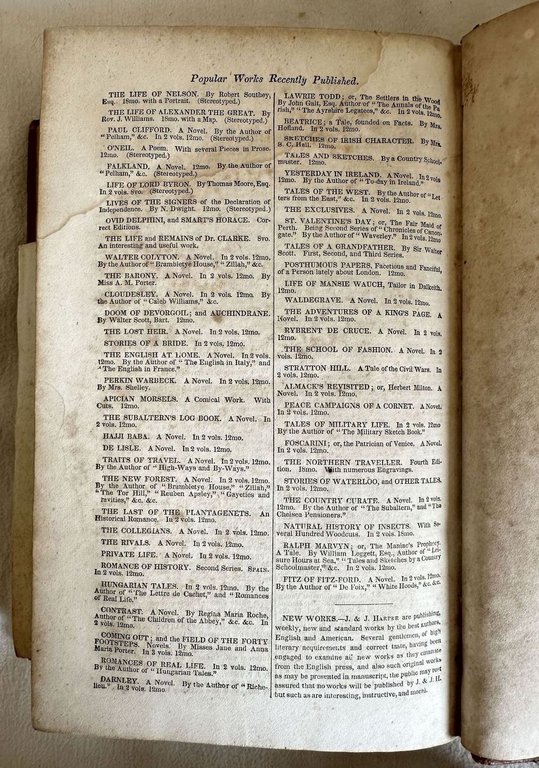 Popular Works Recently Published.
THE LIFE OF NELSON. By Robert Southey,
Esq. 18mo. with a Portrait. (Stereotyped.)
THE LIFE OF ALEXANDER THE GREAT. By
Rev. J. Williams. 18mo. with a Map. (Stereotyped.)
PAUL CLIFFORD. A Novel. By the Author of
"Pelham," &c. In 2 vols. 12mo. (Stereotyped.)
O'NEIL. A Poem. With several Pieces in Prose.
12mo. (Stereotyped.)
FALKLAND. A Novel. 12mo. By the Author of
"Pelham," &c. (Stereotyped.)
LIFE OF LORD BYRON. By Thomas Moore, Esq.
In 2 vols. 8vo. (Stereotyped.)
LIVES OF THE SIGNERS of the Declaration of
Independence. By N. Dwight. 12mo. (Stereotyped.)
OVID DELPHINI, and SMART'S HORACE. Cor-
rect Editions.
THE LIFE and REMAINS of Dr. CLARKE. 8vo.
An interesting and useful work.
WALTER COLYTON. A Novel. In 2 vols. 12mo.
By the Author of "Brambletye House," "Zillah," &c.
THE BARONY. A Novel. In 2 vols. 12mo. By
Miss A. M. Porter.
CLOUDESLEY. A Novel. In 2 vols. 12mo. By
the Author of "Caleb Williams," &c.
DOOM OF DEVORGOIL; and AUCHINDRANE.
By Walter Scott, Bart. 12mo.
THE LOST HEIR. A Novel. In 2 vols. 12mo.
STORIES OF A BRIDE. In 2 vols. 12mo.
THE ENGLISH AT HOME. A Novel. In 2 vols.
12mo. By the Author of "The English in Italy," and
"The English in France."
PERKIN WARBECK. A Novel. In 2 vols. 12mo.
By Mrs. Shelley.
APICIAN MORSELS. A Comical Work. With
Cuts. 12mo.
THE SUBALTERN'S LOG BOOK. A Novel. In
2 vols. 12mo.
HAJJI BABA. A Novel. In 2 vols. 12mo.
DE LISLE. A Novel. In 2 vols. 12mo.
TRAITS OF TRAVEL. A Novel. In 2 vols. 12mo.
By the Author of "High-Ways and By-Ways."
THE NEW FOREST. A Novel. In 2 vols. 12mo.
By the Author of "Brambletye House," "Zillah,"
"The Tor Hill," "Reuben Apsley," "Gayeties and
Gravities," &c. &c.
THE LAST OF THE PLANTAGENETS. An
Historical Romance. In 2 vols. 12mo.
THE COLLEGIANS. A Novel. In 2 vols. 12mo.
THE RIVALS. A Novel. In 2 vols. 12mo.
PRIVATE LIFE. A Novel. In 2 vols. 12mo.
ROMANCE OF HISTORY. Second Series. SPAIN.
In 2 vols. 12mo.
HUNGARIAN TALES. In 2 vols. 12mo. By the
Author of "The Lettre de Cachet," and "Romances
of Real Life."
CONTRAST. A Novel. By Regina Maria Roche,
Author of "The Children of the Abbey," &c. &c. In
2 vols. 12mo.
COMING OUT; and the FIELD OF THE FORTY
FOOTSTEPS. Novels. By Misses Jane and Anna
Maria Porter. In 3 vols. 12mo.
ROMANCES OF REAL LIFE. In 2 vols. 12mo.
By the Author of "Hungarian Tales."
DARNLEY. A Novel. By the Author of "Riche-
lieu." In 2 vols. 12mo.
LAWRIE TODD; or, The Settlers in the Wood
By John Galt, Esq. Author of "The Annals of the Pa
rish," "The Ayrshire Legatees," &c. In 2 vols. 12mo.
BEATRICE; a Tale, founded on Facts. By Mrs.
Hofland. In 2 vols. 12mo.
SKETCHES OF IRISH CHARACTER. By Mrs.
S. C. Hall. 12mo.
TALES AND SKETCHES. By a Country School-
master. 12mo.
YESTERDAY IN IRELAND. A Novel. In 2 vols
12mo. By the Author of "To-day in Ireland."
TALES OF THE WEST. By the Author of "Let
ters from the East," &c. In 2 vols. 12mo.
THE EXCLUSIVES. A Novel. In 2 vols. 12mo.
ST. VALENTINE'S DAY; or, The Fair Maid of
Perth. Being Second Series of "Chronicles of Canon-
gate." By the Author of "Waverley." In 2 vols. 12mo.
TALES OF A GRANDFATHER. By Sir Walter
Scott. First, Second, and Third Series.
POSTHUMOUS PAPERS, Facetious and Fanciful,
of a Person lately about London. 12mo.
LIFE OF MANSIE WAUCH, Tailor in Dalkeith.
12mo.
WALDEGRAVE. A Novel. In 2 vols. 12mo.
THE ADVENTURES OF A KING'S PAGE. A
Novel. In 2 vols. 12mo.
RYBRENT DE CRUCE. A Novel. In 2 vols.
12mo.
THE SCHOOL OF FASHION. A Novel. In 2
vols. 12mo.
STRATTON HILL. A Tale of the Civil Wars. In
2 vols. 12mo.
ALMACK'S REVISITED; or, Herbert Milton. A
Novel. In 2 vols. 12mo.
PEACE CAMPAIGNS OF A CORNET. A Novel.
In 2 vols. 12mo.
TALES OF MILITARY LIFE. In 2 vols. 12mo
By the Author of "The Military Sketch Book."
FOSCARINI; or, the Patrician of Venice. A Novel.
In 2 vols. 12mo.
THE NORTHERN TRAVELLER. Fourth Edi-
tion. 18mo. With numerous Engravings.
STORIES OF WATERLOO, and OTHER TALES.
In 2 vols. 12mo.
THE COUNTRY CURATE. A Novel. In 2 vols.
12mo. By the Author of "The Subaltern," and "The
Chelsea Pensioners."
NATURAL HISTORY OF INSECTS. With Se-
veral Hundred Woodcuts. In 2 vols. 18mo.
RALPH MARVYN; or, The Maniac's Prophecy.
A Tale. By William Leggett, Esq., Author of "Lei-
sure Hours at Sea," "Tales and Sketches by a Country
Schoolmaster," &c. In 2 vols. 12mo.
FITZ OF FITZ-FORD. A Novel. In 2 vols. 12mo.
By the Author of "De Foix," "White Hoods," &c. &c.
NEW WORKS.—J. & J. HARPER are publishing,
weekly, new and standard works by the best authors,
English and American. Several gentlemen, of high
literary acquirements and correct taste, having been
engaged to examine all new works as they emanate
from the English press, and also such original works
as may be presented in manuscript, the public may rest
assured that no works will be published by J. & J. H.
but such as are interesting, instructive, and moral.